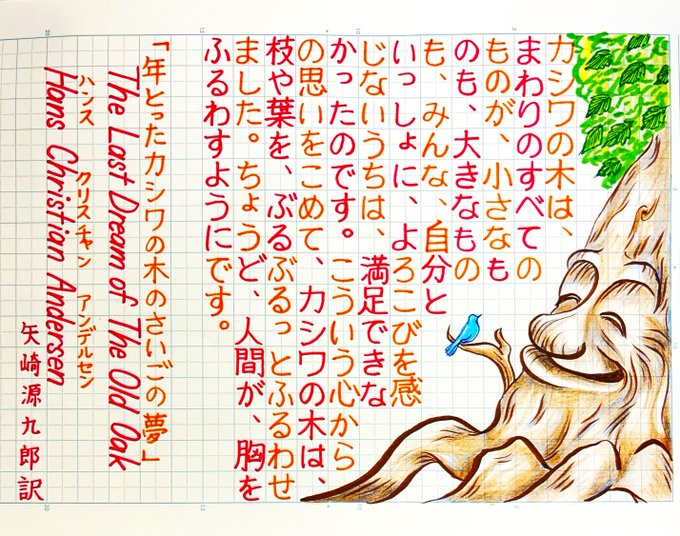 カシワの木は、
まわりのすべての
ものが、小さなも
のも、大きなもの
も、みんな、自分と
いっしょに、よろこびを感
じないうちは、満足できな
かったのです。こういう心から
の思いをこめて、カシワの木は、
枝や葉を、ぶるぶるっとふるわせ
ました。ちょうど、人間が、胸を
ふるわすようにです。
「年とったカシワの木のさいごの夢」
The Last Dream of The Old Oak
ハンス クリスチャン アンデルセン
Hans Christian Andersen
矢崎源九郎訳